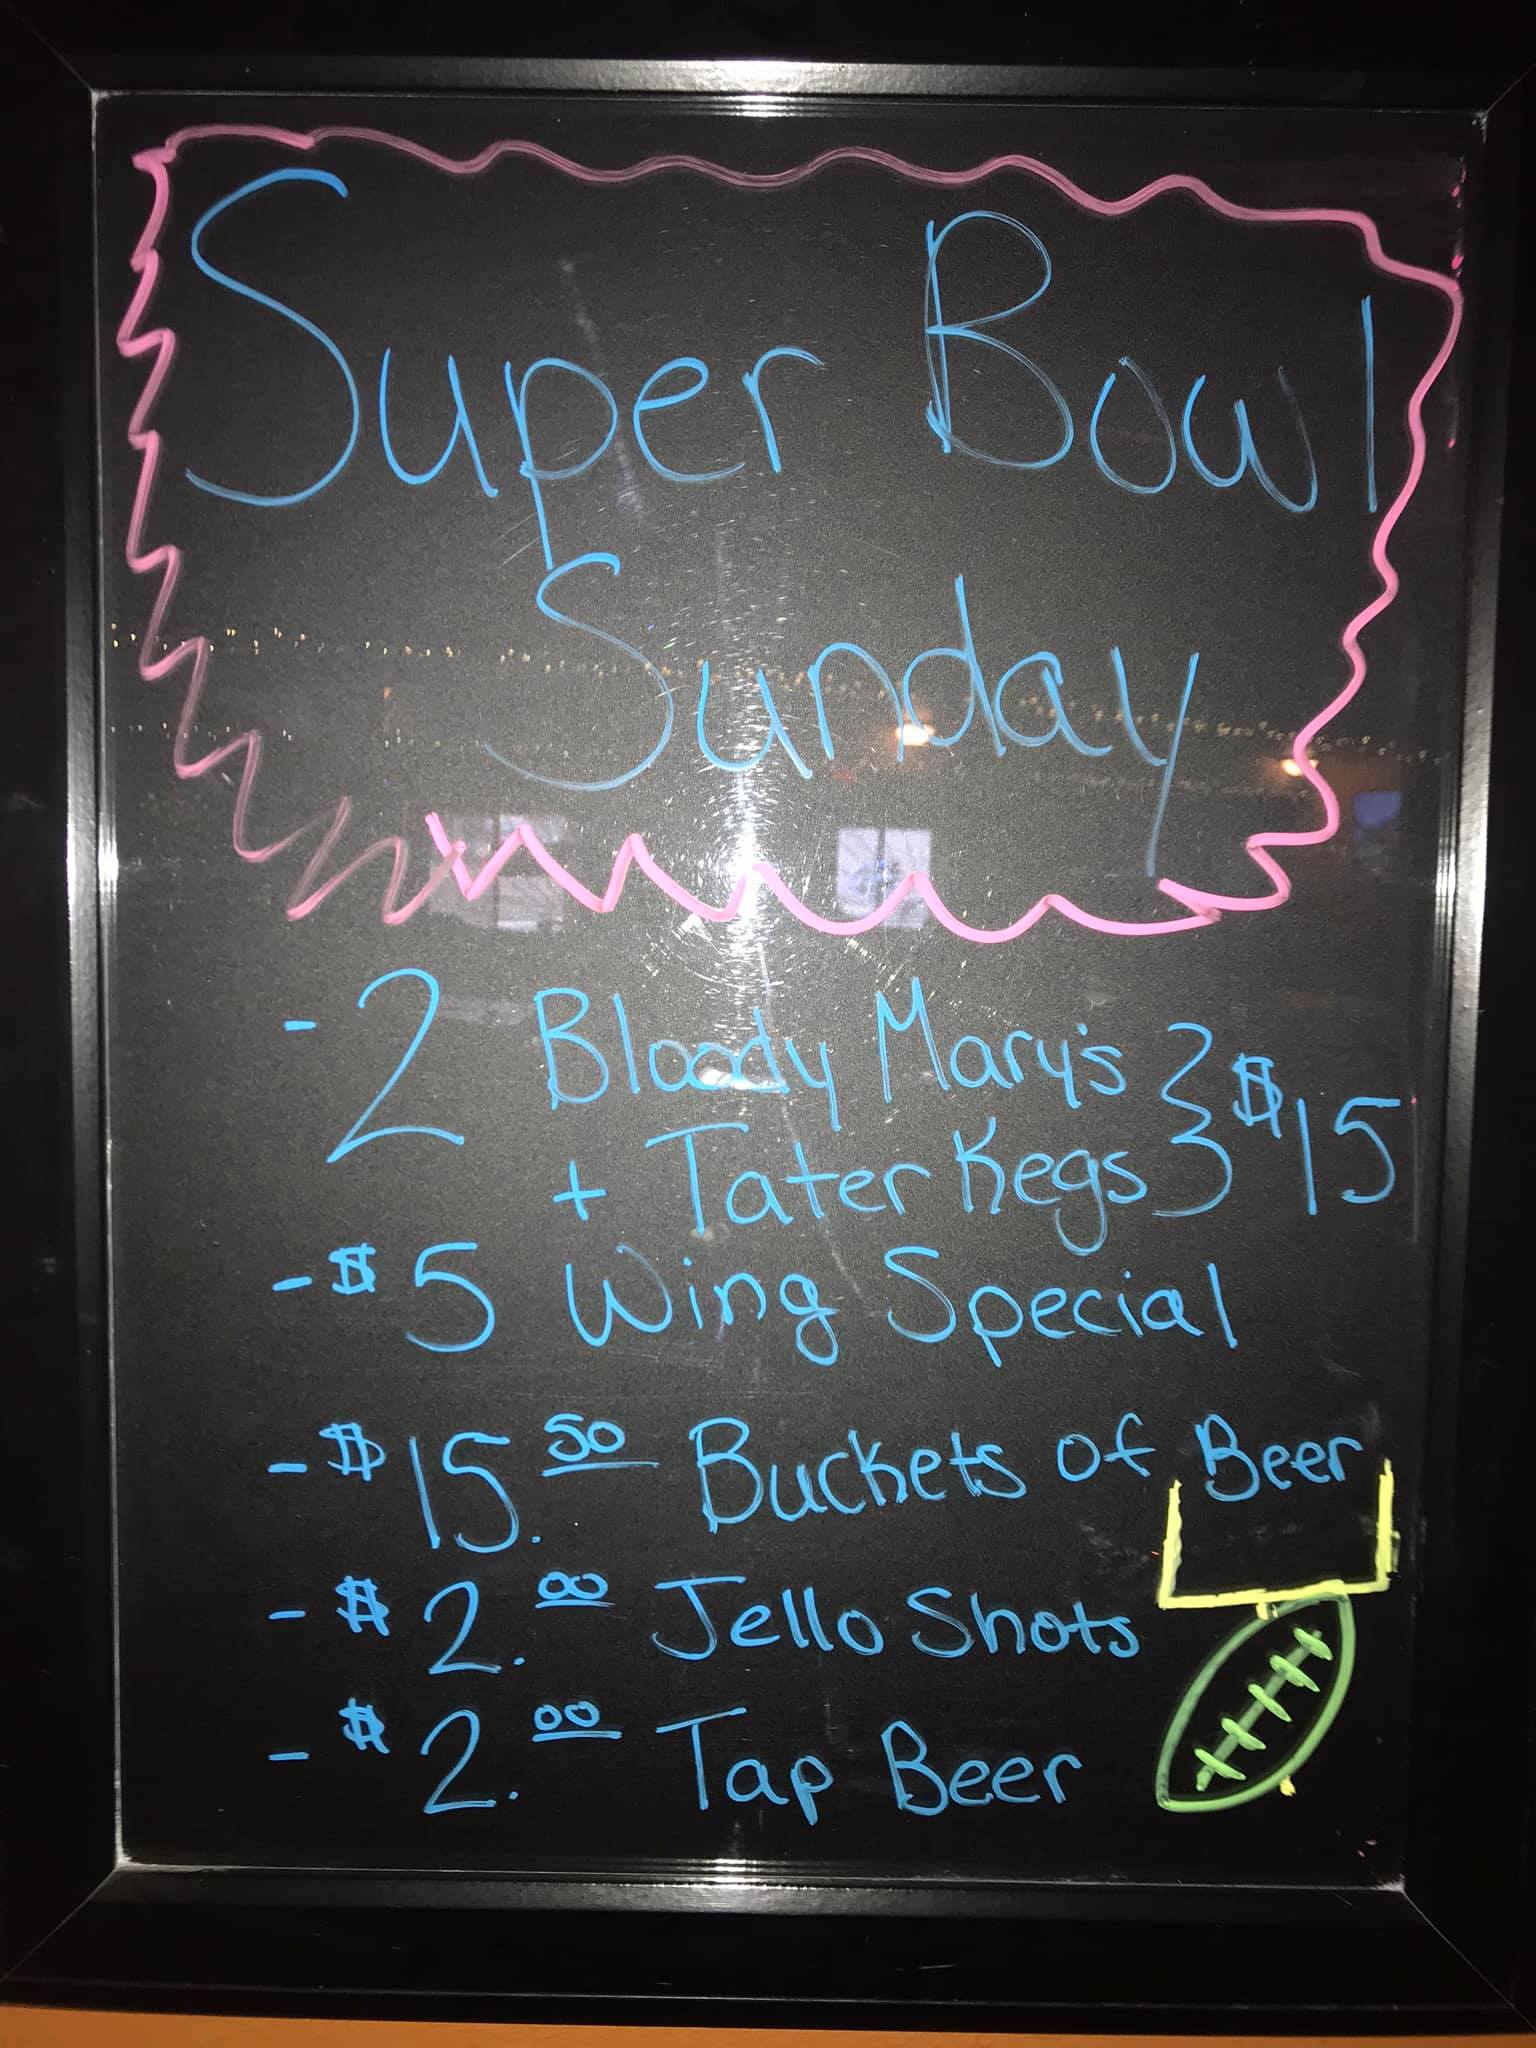 Super Bowl
Sunday
- 2 Bloody Mary's
+ Tater Kegs } $15
- $5 Wing Special
- $15.50 Buckets of Beer
- $2.00 Jello Shots
- $2.00 Tap Beer